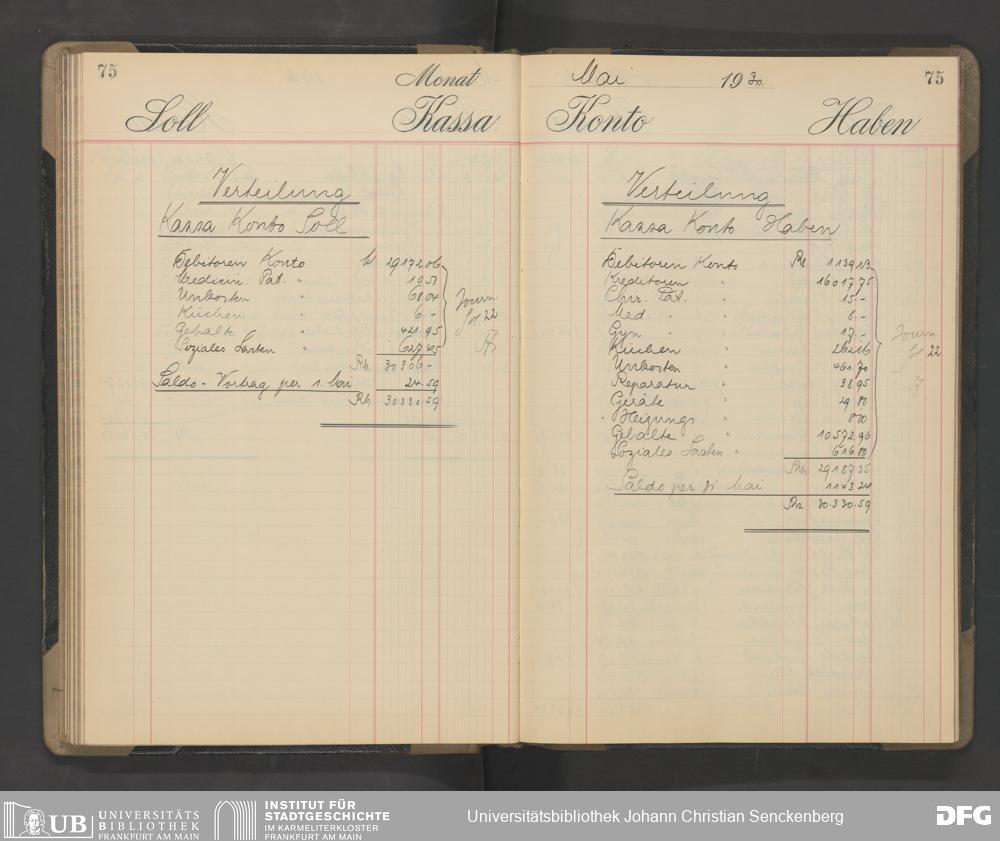 75
Monat
Soll
Kassa
Verteilung
Kassa Konto Soll
Debitoren Konto M 29172.06
Medicin. Pat. " 19.50
Unkosten " 68.04
Küchen " 6.-
Gehalte " 421.95
Soziales Lasten " 627.45
Journ.
fol. 22
RM 30306.-
Saldo-Vortrag per 1. Mai 24.59
RM 30330.59
Mai 1930.
75
Konto
Haben
Verteilung
Kassa Konto Haben
Debitoren Konto RM 1139.13
Kreditoren " 16017.75
Chir. Pat. " 15.-
Med. " " 8.-
Gyn " " 17.-
Küchen " 262.16
Unkosten " 461.70
Reparatur " 38.95
Geräte " 29.80
Heizungs "
Gehalte " 10572.96
Soziales Lasten " 616.80
Journ
fol 22
RM 29187.35
Saldo per 31. Mai 1143.24
RM 30330.59
UB UNIVERSITÄTS
BIBLIOTHEK
FRANKFURT AM MAIN
INSTITUT FÜR
STADTGESCHICHTE
IM KARMELITERKLOSTER
FRANKFURT AM MAIN
Universitätsbibliothek Johann Christian Senckenberg
DFG